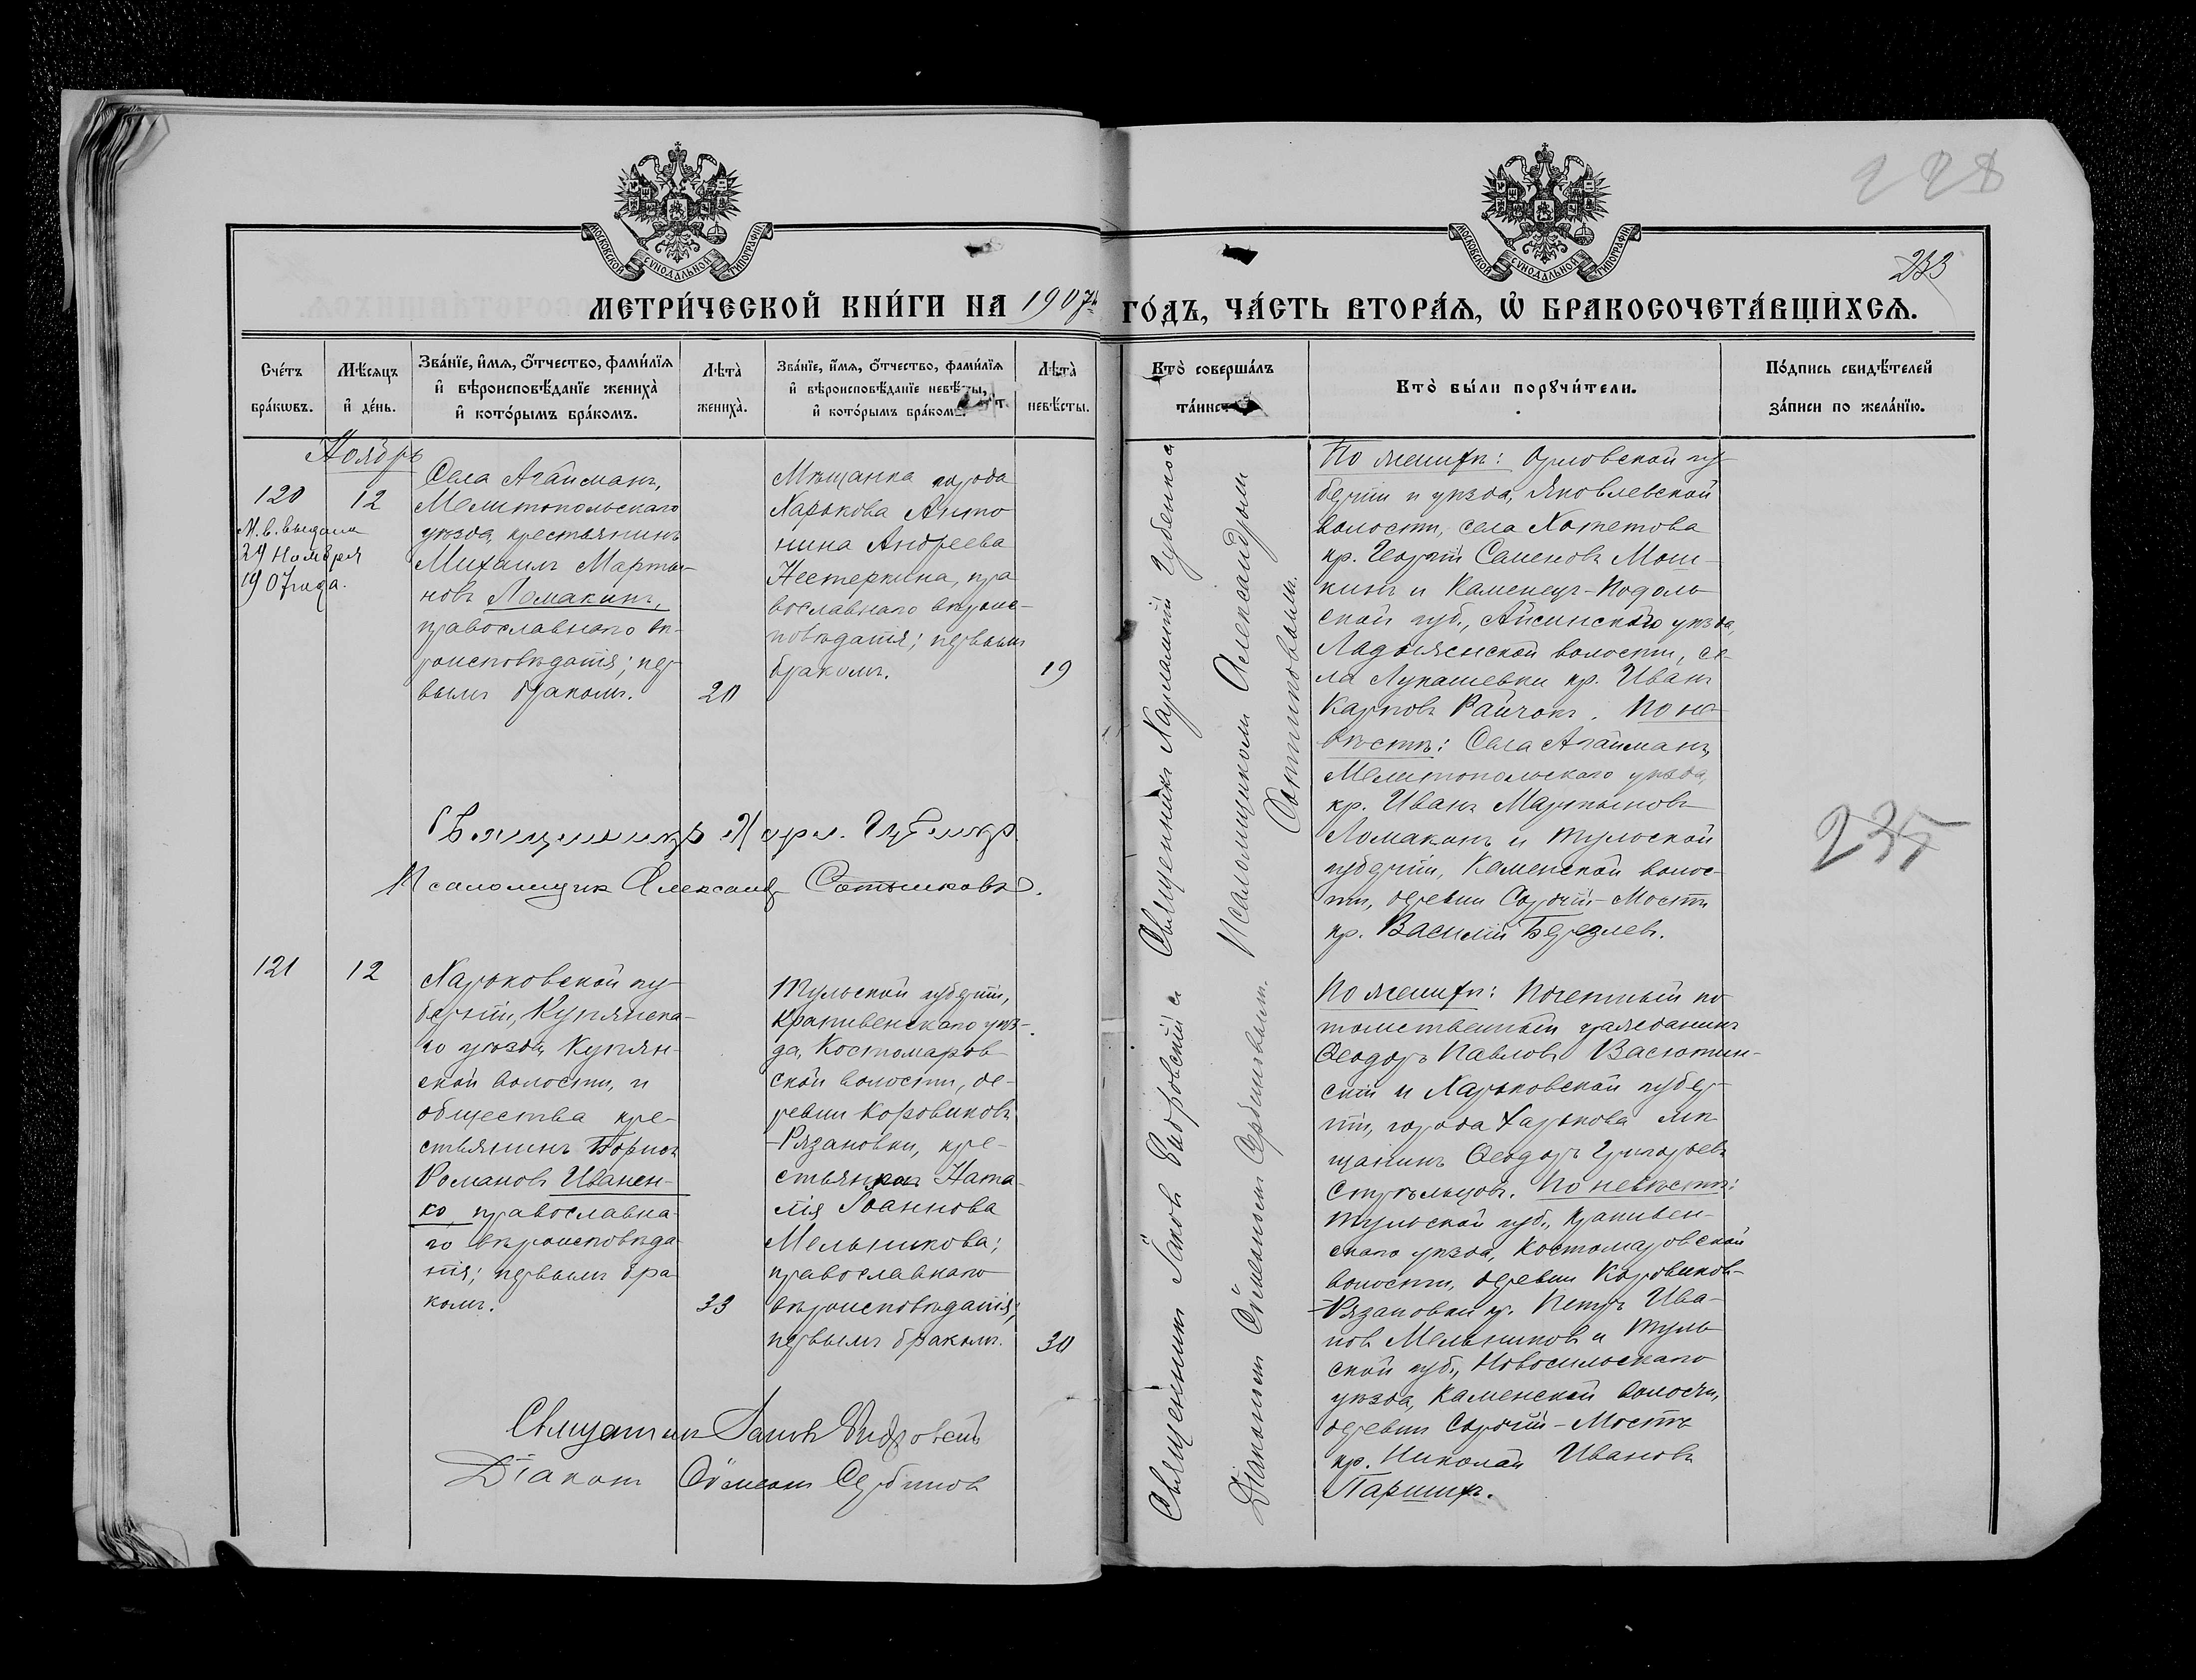 228
233
МОСКОВСКОЙ СѴНОДАЛЬНОЙ ТИПОГРАФІИ
МОСКОВСКОЙ СѴНОДАЛЬНОЙ ТИПОГРАФІИ
МЕТРИ́ЧЕСКОЙ КНИ́ГИ НА 1907й ГО́ДЪ, ЧА́СТЬ ВТОРА́Я, Ѡ҆ БРАКОСОЧЕТА́ВШИХСЯ.
Сче́тъ бра́кѡвъ.
Мѣ́сяцъ и҆ де́нь.
Зва́нїе, и҆́мя, ѻ҆́тчество, фами́лїя
и҆ вѣроисповѣ́данїе жениха̀
и҆ кото́рымъ бра́комъ.
Лѣ́та жениха̀.
Зва́нїе, и҆́мя, ѻ҆́тчество, фами́лїя
и҆ вѣроисповѣ́данїе невѣ́сты,
и҆ кото́рымъ бра́комъ.
Лѣ́та невѣ́сты.
Кто̀ соверша́лъ
та́инство
Кто̀ бы́ли порꙋчи́тели.
По́дпись свидѣ́телей
за́писи по жела́нїю.
Ноябрь
120
12
М. в. выдана
29 Ноября
1907 года.
Села Агайманъ,
Мелитопольскаго
уѣзда, крестьянинъ
Михаилъ Марты-
новъ Ломакинъ,
православнаго вѣ-
роисповѣданія; пер
вымъ бракомъ.
20
Мѣщанка города
Харькова Анто
нина Андреева
Нестеркина, пра
вославнаго вѣроис-
повѣданія; первымъ
бракомъ.
19
Священникъ Харлампій Губенко съ
Псаломщикомъ Александромъ
Сотниковымъ.
По женихѣ: Орловской гу-
берніи и уѣзда, Яковлевской
волости, села Хотетова
кр. Георгій Семеновъ Мош-
кинъ и Каменец-Подоль
ской губ., Айсинскаго уѣзда,
волости, се-
ла Лукашевки кр. Иванъ
Карповъ Райчокъ. По не-
вѣстѣ: Села Агайманъ,
Мелитопольскаго уѣзда,
кр. Иванъ Мартыновъ
Ломакинъ и Тульской
губерніи, Каменской волос-
ти, деревни Мость
кр. Василій Березлев.
Священникъ Харл. Губенко
Псаломщик Александръ Сотниковъ.
235
121
12
Харьковской гу-
берніи, Купянска-
го уѣзда, Купян-
ской волости, и
общества кре-
стьянинъ Борисъ
Романовъ Иванен-
ко, православна-
го вѣроисповѣда
нія; первымъ бра
комъ.
33
Тульской губерніи,
Крапивенскаго уѣз-
да, Костомаров-
ской волости, де-
ревни Коровиковъ
-Рязановки, кре-
стьянка Ната-
лія Іоаннова
Мельникова;
православнаго
вѣроисповѣданія;
первымъ бракомъ.
30
Священникъ Іаковъ съ
Діакономъ Стефаномъ Сербиновымъ.
По женихѣ: Почетный по
томственный гражданинъ
Ѳеодоръ Павловъ Васютин-
скій и Харьковской губер-
ніи, города Харькова мѣ-
щанинъ Ѳеодоръ Григорьевъ
Стрѣльцовъ. По невѣстѣ:
Тульской губ., Крапивен-
скаго уѣзда, Костомаровской
волости, деревни Коровиков-
-Рязановки кр. Петръ Ива-
новъ Мельниковъ и Туль
ской губ., Новосильскаго
уѣзда, Каменской волости,
деревни Мость
кр. Николай Ивановъ
Паршинъ.
Священникъ Іаковъ
Діаконъ Стефанъ Сербиновъ